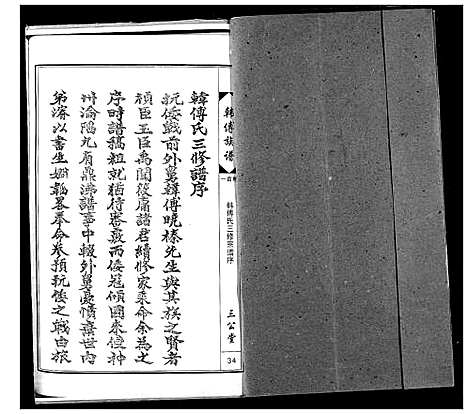 韓傅氏三修譜序
抗倭戰前外舅韓傅曉榛先生與其族之賢者
禎臣玉臣禹閣筱庸諸君續修家乘命余為之
序時譜稿粗就猶待審覈而倭寇傾國來侵神
州淪陷九有鼎沸譜事中輟外舅憂憤棄世內
弟濬以書生嫺韜畧奉命參預抗倭之戰由旅
韓傅族譜
卷首一
韓傅氏三修宗譜序
三公堂
34